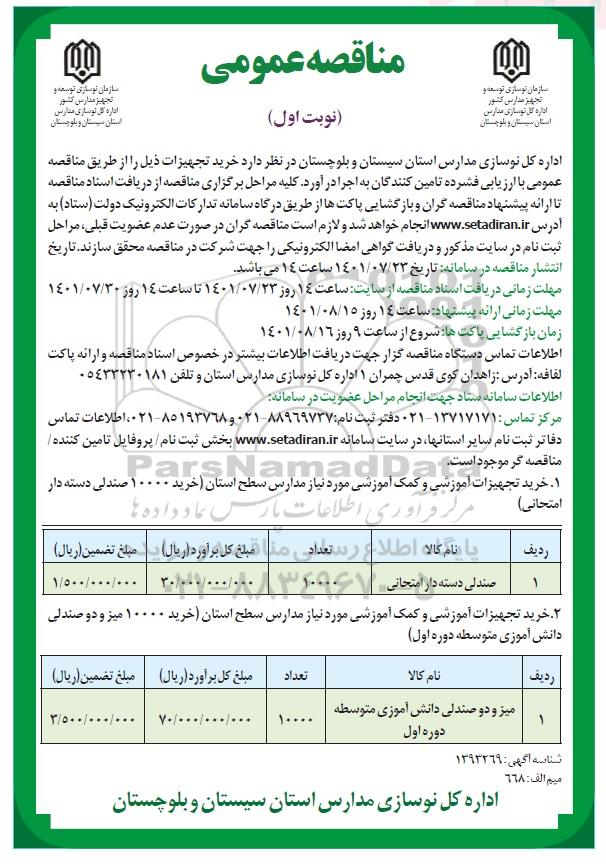 مناقصه عمومی
(نوبت اول)
سازمان نوسازی توسعه و
تجهیز مدارس کشور
اداره کل نوسازی مدارس
استان سیستان و بلوچستان
سازمان نوسازی توسعه و
تجهیز مدارس کشور
اداره کل نوسازی مدارس
استان سیستان و بلوچستان
اداره کل نوسازی مدارس استان سیستان و بلوچستان در نظر دارد خرید تجهیزات ذیل را از طریق مناقصه
عمومی با ارزیابی فشرده تامین کنندگان به اجرا در آورد. کلیه مراحل برگزاری مناقصه از دریافت اسناد مناقصه
تا ارائه پیشنهاد مناقصه گران و بازگشایی پاکت ها از طریق درگاه سامانه تدارکات الکترونیک دولت (ستاد) به
آدرس www.setadiran.ir انجام خواهد شد و لازم است مناقصه گران در صورت عدم عضویت قبلی، مراحل
ثبت نام در سایت مذکور و دریافت گواهی امضا الکترونیکی را جهت شرکت در مناقصه محقق سازند. تاریخ
انتشار مناقصه در سامانه: تاریخ ۱۴۰۱/۰۷/۲۳ ساعت ۱۴ می باشد.
مهلت زمانی دریافت اسناد مناقصه از سایت: ساعت ۱۴ روز ۱۴۰۱/۰۷/۲۳ تا ساعت ۱۴ روز ۱۴۰۱/۰۷/۳۰
مهلت زمانی ارائه پیشنهاد: ساعت ۱۴ روز ۱۴۰۱/۰۸/۱۵
زمان بازگشایی پاکت ها: شروع از ساعت ۹ روز ۱۴۰۱/۰۸/۱۶
اطلاعات تماس دستگاه مناقصه گزار جهت دریافت اطلاعات بیشتر در خصوص اسناد مناقصه و ارائه پاکت
لفافه: آدرس :زاهدان کوی قدس چمران ۱ اداره کل نوسازی مدارس استان و تلفن ۰۵۴۳۳۲۳۰۱۸۱
اطلاعات سامانه ستاد جهت انجام مراحل عضویت در سامانه:
مرکز تماس: ۱۳۷۱۷۱۷۱-۰۲۱ دفتر ثبت نام: ۸۸۹۶۹۷۳۷-۰۲۱ و ۸۵۱۹۳۷۶۸-۰۲۱، اطلاعات تماس
دفاتر ثبت نام سایر استانها، در سایت سامانه www.setadiran.ir بخش ثبت نام/ پروفایل تامین کننده/
مناقصه گر موجود است.
ParsNamadData
مرکز فرآوری اطلاعات پارس نماد داده ها
۱. خرید تجهیزات آموزشی و کمک آموزشی مورد نیاز مدارس سطح استان (خرید ۱۰۰۰۰ صندلی دسته دار
امتحانی)
پایگاه اطلاع رسانی مناقصه و مزایده
۰۲۱-۸۸۳۴۹۶۷۰-۵
ردیف نام کالا تعداد مبلغ کل برآورد (ریال) مبلغ تضمین(ریال)
۱ صندلی دسته دار امتحانی ۱۰۰۰۰ ۳۰/۰۰۰/۰۰۰/۰۰۰ ۱/۵۰۰/۰۰۰/۰۰۰
۲. خرید تجهیزات آموزشی و کمک آموزشی مورد نیاز مدارس سطح استان (خرید ۱۰۰۰۰ میز و دو صندلی
دانش آموزی متوسطه دوره اول)
ردیف نام کالا تعداد مبلغ کل برآورد (ریال) مبلغ تضمین(ریال)
۱ میز و دو صندلی دانش آموزی متوسطه ۱۰۰۰۰ ۷۰/۰۰۰/۰۰۰/۰۰۰ ۳/۵۰۰/۰۰۰/۰۰۰
دوره اول
شناسه آگهی: ۱۳۹۳۲۶۹
میم الف: ۶۶۸
اداره کل نوسازی مدارس استان سیستان و بلوچستان